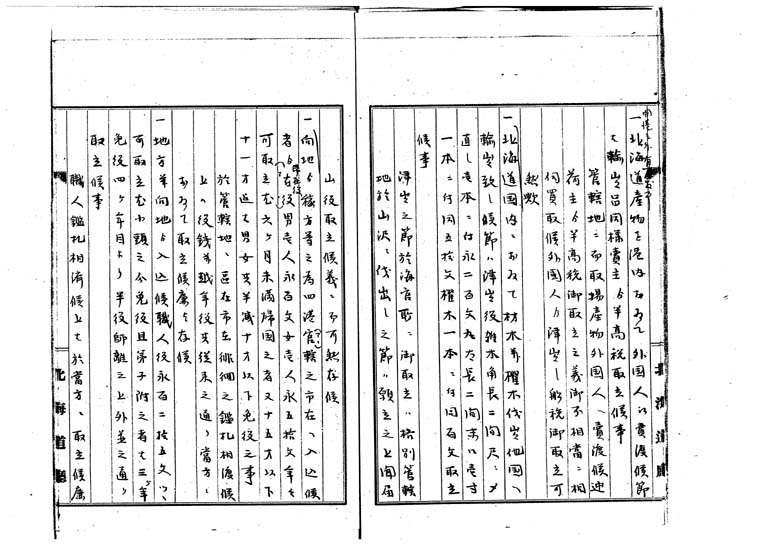 一北海道産物を港内おゐて外国人江賣渡候節
も輸出品同様賣主ゟ半高税取立候事
管轄地ニ而取揚産物外国人ヘ賣渡候迚
荷主ゟ半高税御取立之義御不相當ニ相
何買取候外国人ゟ津出し税御取立可
然歟
一北海道国内ニおゐて材木并櫂木伐出他国ヘ
輸出致し候節ハ津出役雑木角長二間尺〆
直し壱本ニ付永二百文丸太長二間末口壱寸
一本ニ付同五拾文櫂木一本ニ付同百文取立
候事
津出之節於海官所ニ御取立ハ格別管轄
地於山沢ニ伐出し之節ハ願立之上聞届
山役取立候義ハ不可然存候
一向地ゟ稼方等之為四港官轄之市在ヘ入込候
者ゟ在役男壱人永百文女壱人永五拾文年々
可取立尤六ヶ月未満帰国之者又十五才以下
十一才迄も男女共半減十才以下免役之事
於管轄地ニ区在市在徘徊之鑑札相渡候
上ハ役銭并越年役共従来之通リ當方ニ
おゐて取立候廉与存候
一地方并向地ゟ入込候職人役永百二拾五文ツヽ
可取立尤小頭之分免役且弟子附之者も三ヶ年
免役四ヶ年目ゟ半役師離之上外並之通リ
取立候事
職人鑑札相渡候上も於當方ニ取立候廉
北海道廳
北海道廳